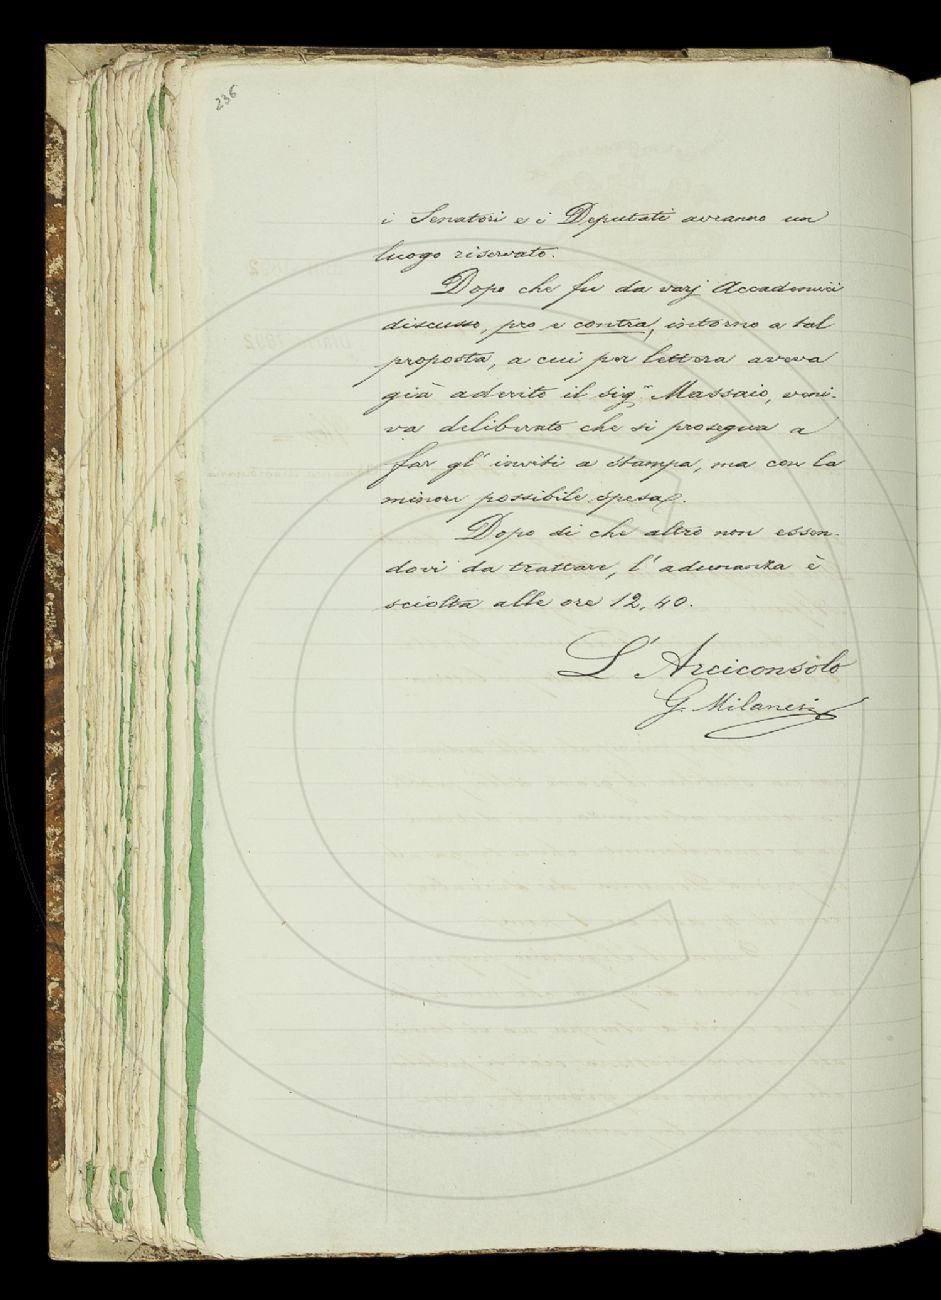 236
i Senatori e i Deputati avranno un
luogo riservato.
Dopo che fu da varj Accademici
discusso, pro e contra, intorno a tal
proposta, a cui per lettera aveva
già aderito il sigr Massaio, veni-
va deliberato che si prosegua a
far gl' inviti a stampa, ma con la
minore possibile spesa.
Dopo di che altro non essen-
dovi da trattare, l' adunanza è
sciolta alle ore 12,40.
L' Arciconsolo
G. Milanesi